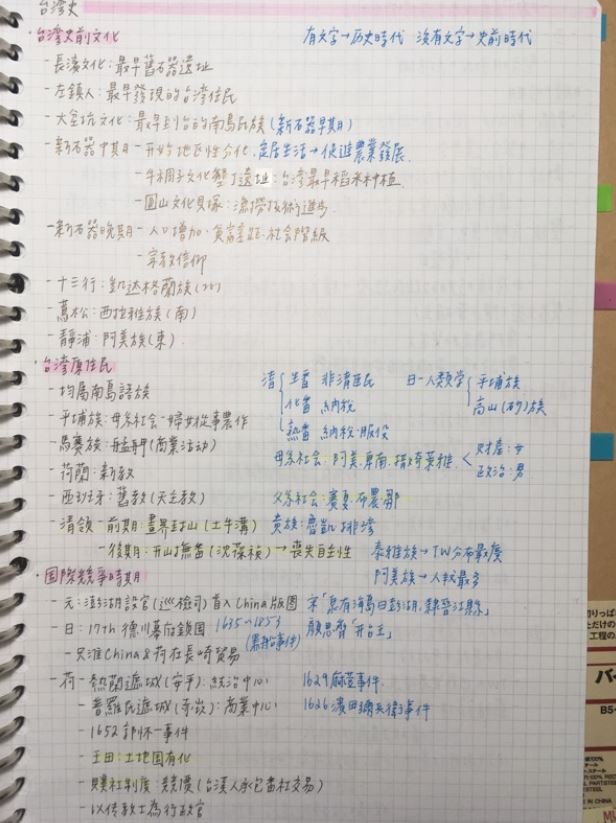 台灣史
·台灣史前文化 有文字→历史時代 沒有文字→史前時代
-長濱文化:最早舊石器遺址
-左鎮人:最早發現的台灣住民
-大坌坑文化:最早到台的南島民族(新石器早期)
-新石器中期-开始地区性分化.定居生活→促進農業發展.
-牛稠子文化墾丁遺址:台灣最早稻米种植
-圓山文化貝塚:漁撈技術進步.
-新石器晚期-人口增加.貧富差距.社会階級
-宗教信仰
-十三行:凱达格蘭族(北)
-蔦松:西拉雅族(南)
-靜浦:阿美族(東)
·台灣原住民 清 生番 非清臣民 日-人類学 平埔族
-均屬南島語族 化番 納稅 高山(砂)族
-平埔族:母系社会-婦女從事農作 熟番 納稅.服役
-馬賽族:艋舺(商業活动) 母系社会:阿美.卑南 財產:女
-荷蘭:新教 政治:男
-西班牙:舊教(天主教) 父系社会:賽夏.布農.鄒
-清領-前期:畫界封山(土牛溝) 貴族:魯凱.排灣
-後期:开山撫番(沈葆楨)→喪失自主性 泰雅族→TW分布最廣
阿美族→人数最多
·国際競爭時期
-元:澎湖設官(巡檢司)首入China版图 宋「有海島曰彭湖,隸晋江縣」
-日:17th 德川幕府鎖国 1635~1853 顏思齊"开台王"
(黑船事件)
-只准China&荷在長崎貿易
-荷-熱蘭遮城(安平):統治中心 1629麻荳事件
-普羅民遮城(赤崁):商業中心 1626濱田彌兵衛事件
-1652郭怀一事件
-王田:土地国有化
-贌社制度:競價(台漢人承包番社交易)
-以傳教士為行政官
切りっぱ
B5-
IN CHINA